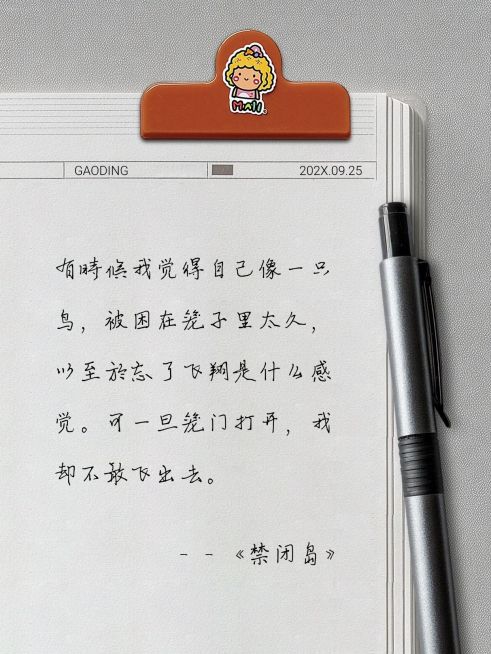 Mali
GAODING
202X.09.25
有時候我觉得自己像一只
鸟，被困在笼子里太久，
以至於忘了飞翔是什么感
觉。可一旦笼门打开，我
却不敢飞出去。
--《禁闭岛》